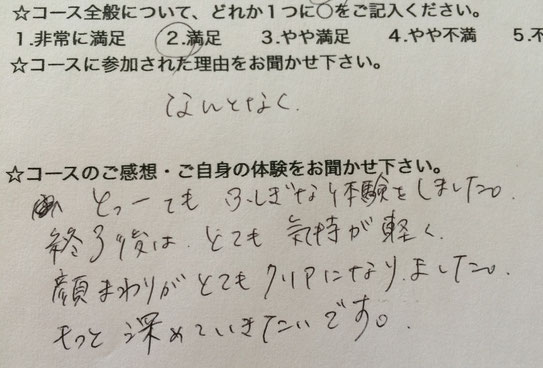 ☆コース全般について、どれか1つに○をご記入ください。
1.非常に満足 2.満足 3.やや満足 4.やや不満 5.不
☆コースに参加された理由をお聞かせ下さい。
なんとなく.
☆コースのご感想・ご自身の体験をお聞かせ下さい。
とっーても ふしぎな体験をしました。
終了後は、とても 気持が軽く、
顔まわりがとてもクリアになりました。
もっと深めていきたいです。